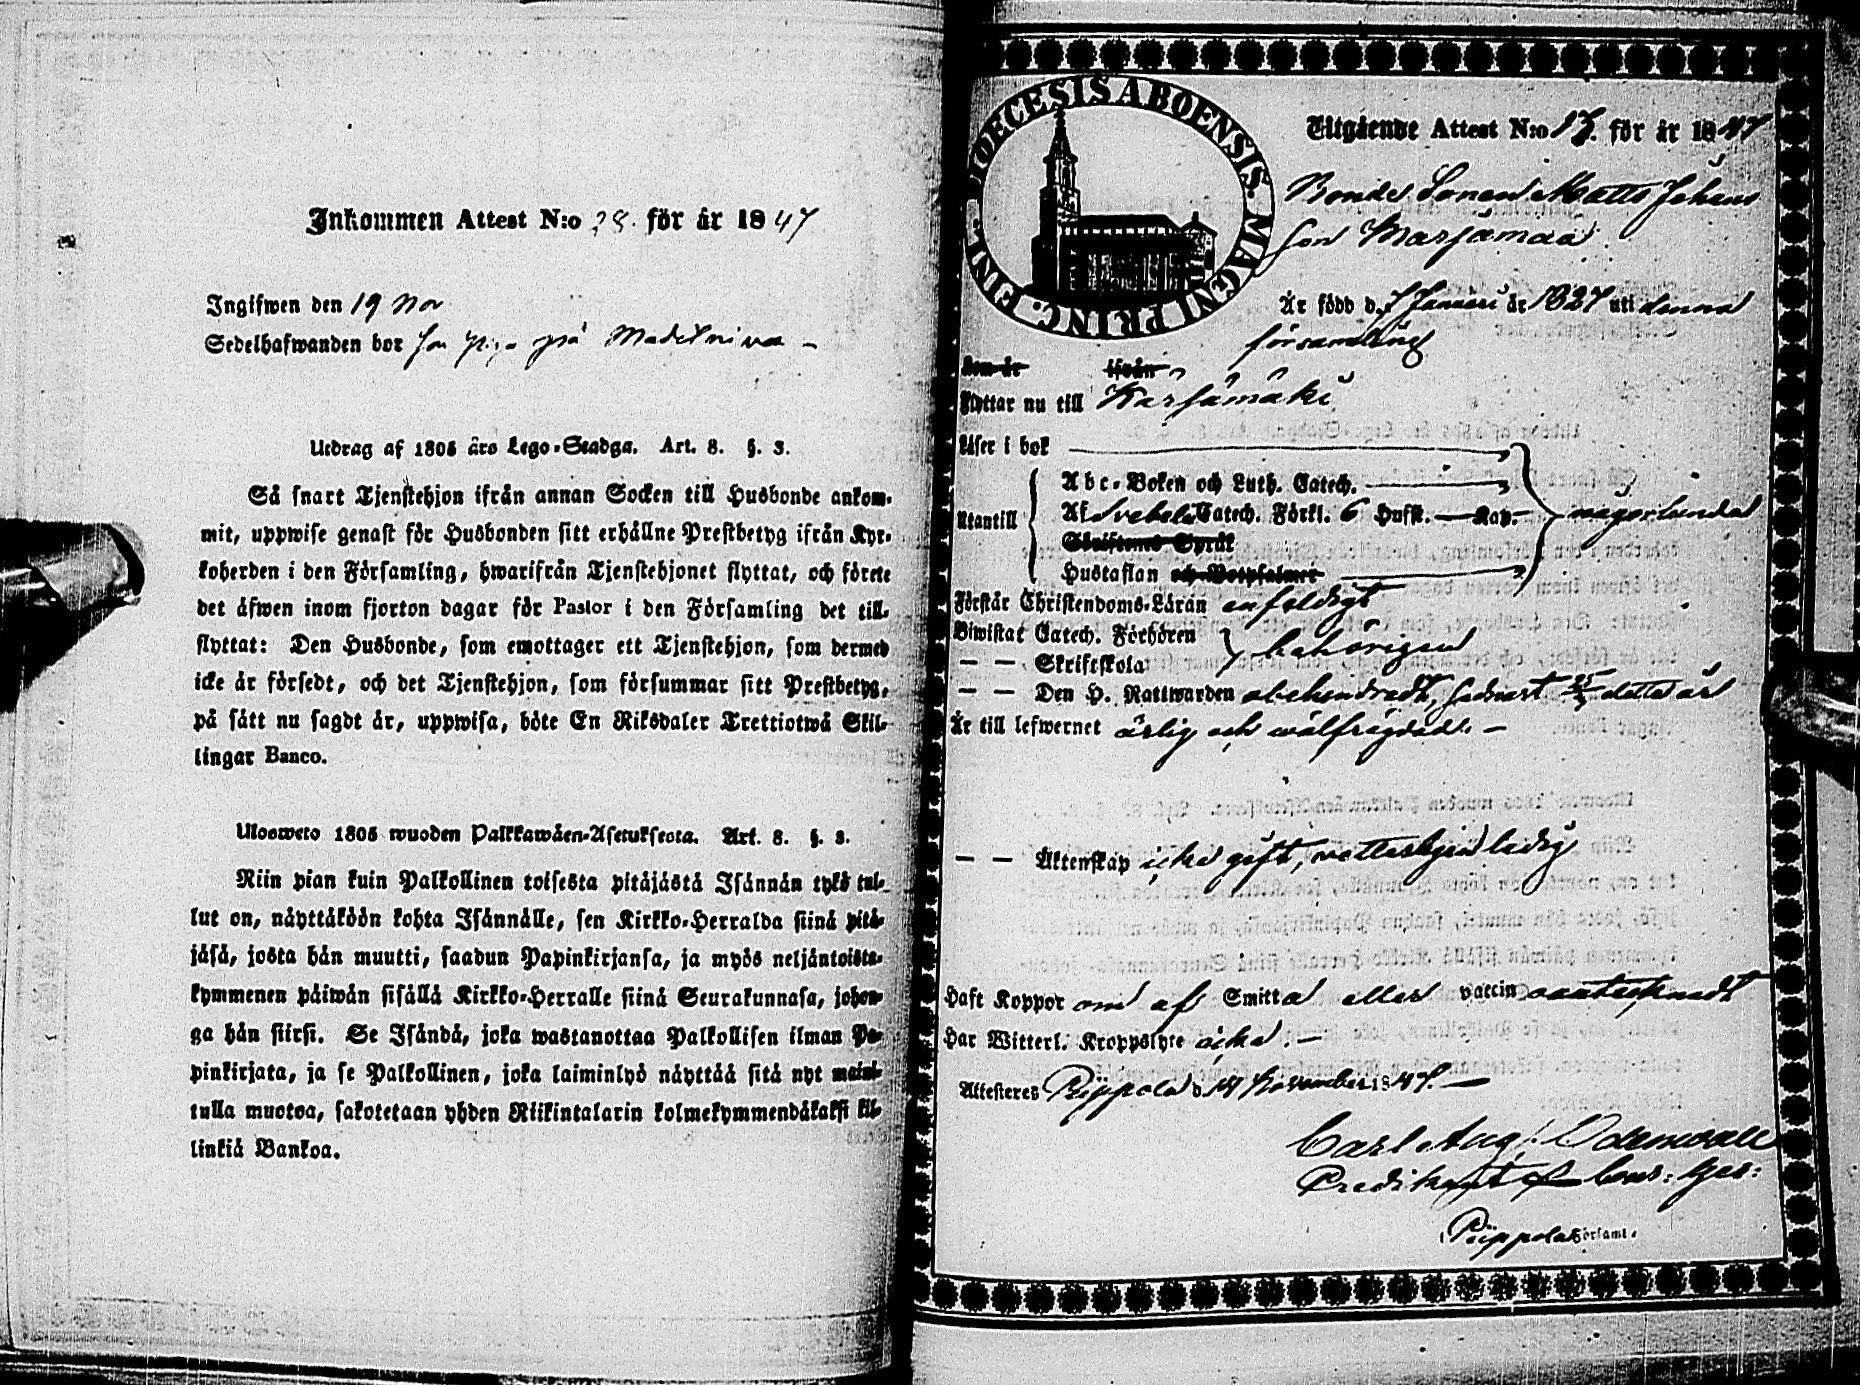 Inkommen Attest N:o 28. för år 1847
Ingifwen den 19 Nov
Sedelhafwanden bor på
Utdrag af 1805 års Lego-Stadga. Art. 8. §. 3.
Så snart Tjenstehjon ifrån annan Socken till Husbonde ankom-
mit, uppwise genast för Husbonden sitt erhållne Prestbetyg ifrån Kyr-
koherden i den Församling, hwarifrån Tjenstehjonet flyttat, och förete
det äfwen inom fjorton dagar för Pastor i den Församling det till-
flyttat: Den Husbonde, som emottager ett Tjenstehjon, som dermed
icke är försedt, och det Tjenstehjon, som försummar sitt Prestbetyg,
på sätt nu sagdt är, uppwisa, böte En Riksdaler Trettiotwå Skil-
lingar Banco.
Ulosweto 1805 wuoden Palkkawäen-Asetuksesta. Art. 8. §. 3.
Niin pian kuin Palkollinen toisesta pitäjästä Isännän tykö tul-
lut on, näyttäköön kohta Isännälle, sen Kirkko-Herralda siinä pitä-
jäsä, josta hän muutti, saadun Papinkirjansa, ja myös neljäntoista-
kymmenen päiwän sisällä Kirkko-Herralle siinä Seurakunnasa, johon-
ga hän siirsi. Se Isändä, joka wastanottaa Palkollisen ilman Pa-
pinkirjata, ja se Palkollinen, joka laiminlyö näyttää sitä nyt maini-
tulla muotoa, sakotetaan yhden Riikintalarin kolmekymmendäkaksi kil-
linkiä Bankoa.
DIOECESIS ABOENSIS. MAGNI PRINC. FINL.
Utgående Attest N:o 17. för år 1847
Bonde Sonen Matts Johans
son Marjamaa
Är född d. 7 Januari år 1827 uti denna
församling
kom år ifrån
Flyttar nu till Kärsämäki
Läser i bok
Utantill Abc-Boken och Luth. Catech.
Af Svebelii Catech. Förkl. 6 Hufst. — Kap. någorlunda
Skriftens Språk
Hustaflan och Botpsalmer
Förstår Christendoms-Läran enfeldigt
Biwistat Catech. Förhören
— — Skriftskola behörigen
— — Den H. Nattwarden obehindradt, sednast 25/ detta år
Är till lefwernet ärlig och wälfrägdad. —
— — Äktenskap icke gift, ledig
Haft Koppor om af Smitta eller vaccin oantecknadt
Har Witterl. Kroppslyte icke. —
Attesteres Piippola d. 14 November 1847. —
Carl Aug. Odenwall
Predikant
Piippola Församl.